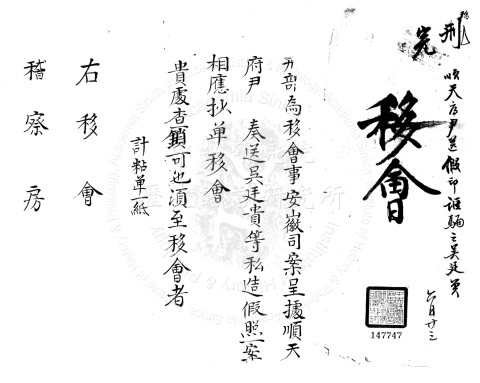 刑
完
順天府尹送假印誆騙之吳廷貴
六月廿三
移會
147747
刑部為移會事安徽司案呈據順天
府尹 奏送吳廷貴等私造假照一案
相應抄单移會
貴處查銷可也須至移會者
計粘單一紙
右移會
稽察房